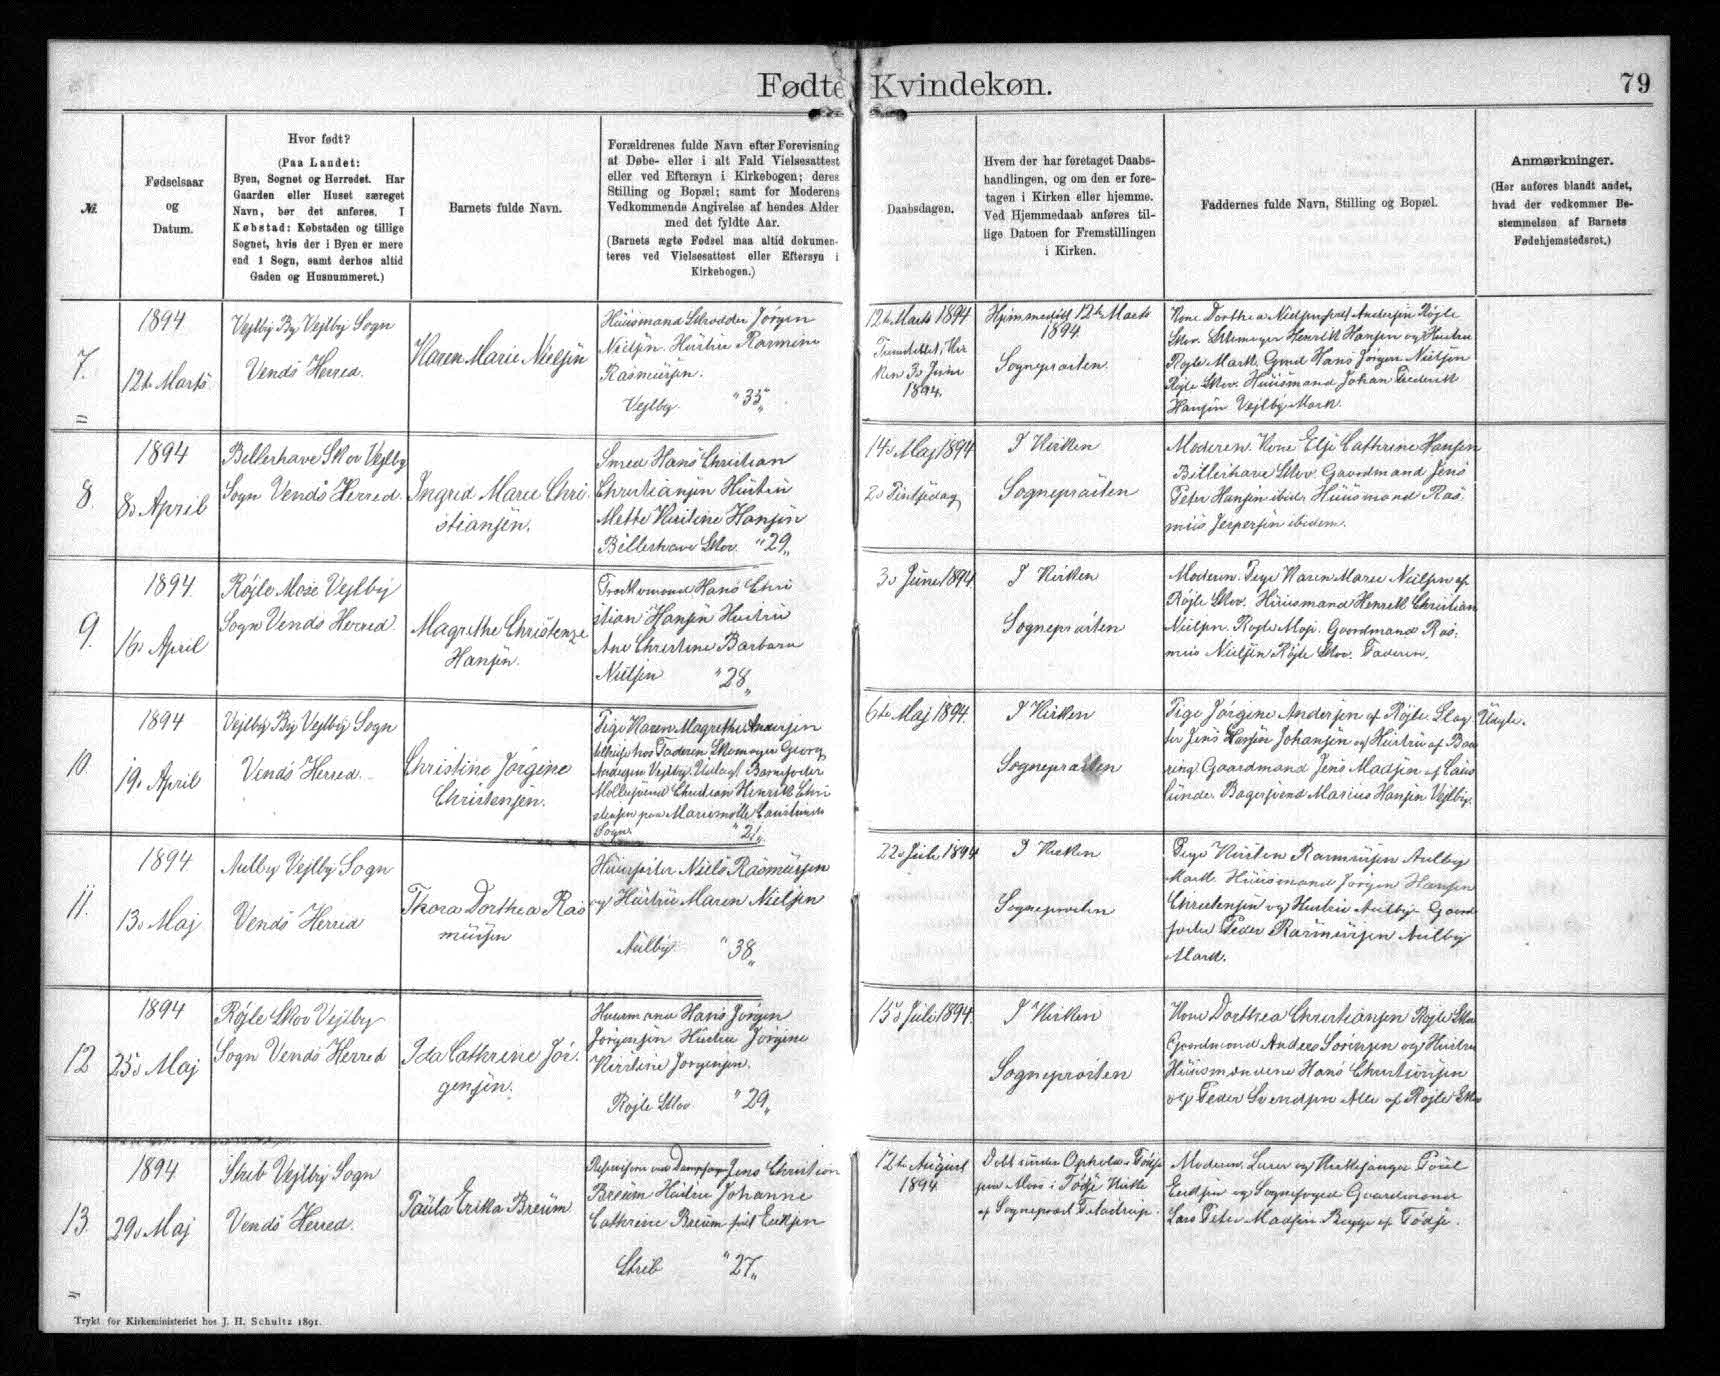 Fødte Kvindekøn.
79
№.
Fødselsaar
og
Datum.
Hvor født?
(Paa Landet:
Byen, Sognet og Herredet. Har
Gaarden eller Huset særeget
Navn, bør det anføres. I
Købstad: Købstaden og tillige
Sognet, hvis der i Byen er mere
end 1 Sogn, samt derhos altid
Gaden og Husnummeret.)
Barnets fulde Navn.
Forældrenes fulde Navn efter Forevisning
at Døbe- eller i alt Fald Vielsesattest
eller ved Eftersyn i Kirkebogen; deres
Stilling og Bopæl; samt for Moderens
Vedkommende Angivelse af hendes Alder
med det fyldte Aar.
(Barnets ægte Fødsel maa altid dokumen-
teres ved Vielsesattest eller Eftersyn i
Kirkebogen.)
Daabsdagen.
Hvem der har foretaget Daabs-
handlingen, og om den er fore-
tagen i Kirken eller hjemme.
Ved Hjemmedaab anføres til-
lige Datoen for Fremstillingen
i Kirken.
Faddernes fulde Navn, Stilling og Bopæl.
Anmærkninger.
(Her anføres blandt andet,
hvad der vedkommer Be-
stemmelsen af Barnets
Fødehjemstedsret.)
7.
1894
12te Marts
Vejlby By Vejlby Sogn
Vends Herred.
Karen Marie Nielsen
Huusmand Skrædder Jørgen
Nielsen. Hustru Rasmine
Rasmussen.
Vejlby. "35"
12te Marts 1894
Kir
ken 3d Juni
1894.
Hjemmedøbt 12te Marts
1894.
Sognepræsten.
Kone Dorthea Nielsen født Andersen Røjle
Skov. Skomager Henrik Hansen og Hustru
Røjle Mark. Gmd Hans Jørgen Nielsen
Røjle Skov. Huusmand Johan Frederik
Hansen Vejlby Mark.
8
1894
8d April
Billeshave Skov Vejlby
Sogn Vends Herred.
Ingred Marie Chri
stiansen.
Smed Hans Christian
Christiansen Hustru
Mette Kirstine Hansen
Billeshave Skov. "29"
14d Maj 1894
2d Pintsedag
I Kirken
Sognepræsten
Moderen. Kone Else Cathrine Hansen
Billeshave Skov Gaardmand Jens
Peter Hansen ibid. Huusmand Ras
mus Jespersen ibidem.
9.
1894.
16d April
Røjle Mose Vejlby
Sogn Vends Herred.
Magrethe Christense
Hansen.
Hans Chri
stian Hansen Hustru
Ane Christine Barbara
Nielsen "28"
3d Juni 1894
I Kirken
Sognepræsten
Moderen. Pige Karen Marie Nielsen af
Røjle Skov. Huusmand Henrik Christian
Nielsen. Røjle Mose. Gaardmand Ras:
mus Nielsen Røjle Skov. Faderen.
10.
1894
19d April
Vejlby By Vejlby Sogn
Vends Herred.
Christine Jørgine
Christensen.
Pige Karen Magrethe Andersen
tilhuse hos Faderen Skomager Georg
Andersen Vejlby. Udlagt Barnefader
Møllesvend Christian Henrik Chri
stensen paa Mariemølle
Sogn. "21"
6te Maj 1894.
I Kirken
Sognepræsten
Pige Jørgine Andersen af Røjle Slag
ter Jens Hansen Johansen og Hustru af Baa
ring Gaardmand Jens Madsen af
lunde. Bagersvend Marius Hansen Vejlby.
Uægte.
11.
1894
13d Maj
Aulby Vejlby Sogn
Vends Herred
Thora Dorthea Ras
mussen
Niels Rasmussen
og Hustru Maren Nielsen
Aulby. "38"
22d Juli 1894
I Kirken
Sognepræsten
Pige Kirsten Rasmussen Aulby
Mark. Huusmand Jørgen Hansen
Christensen og Hustru Aulby. Gaard
Peder Rasmussen Aulby
Mark.
12
1894
25d Maj
Røjle Skov Vejlby
Sogn Vends Herred
Ida Cathrine Jør
gensen.
Huusmand Hans Jørgen
Jørgensen Hustru Jørgine
Kirstine Jørgensen.
Røjle Skov "29"
15d Juli 1894.
I Kirken
Sognepræsten
Kone Dorthea Christiansen Røjle Skov
Gaardmand Anders Sørensen og Hustru
Huusmændene Hans Christiansen
og Peder Svendsen Alle af Røjle Skov
13.
1894
29d Maj
Strib Vejlby Sogn
Vends Herred.
Paula Erika Breum
Jens Christian
Breum Hustru Johanne
Cathrine Breum født Eriksen
Strib "27"
12te August
1894.
Døbt under Ophold i Fødse
paa Mors i Kirke
af Sognepræst
Moderen. Lærer og Kirkesanger Poul
Eriksen og Sognefoged Gaardmand
Lars Peter Madsen Bugge af
Trykt for Kirkeministeriet hos J. H. Schultz 1891.